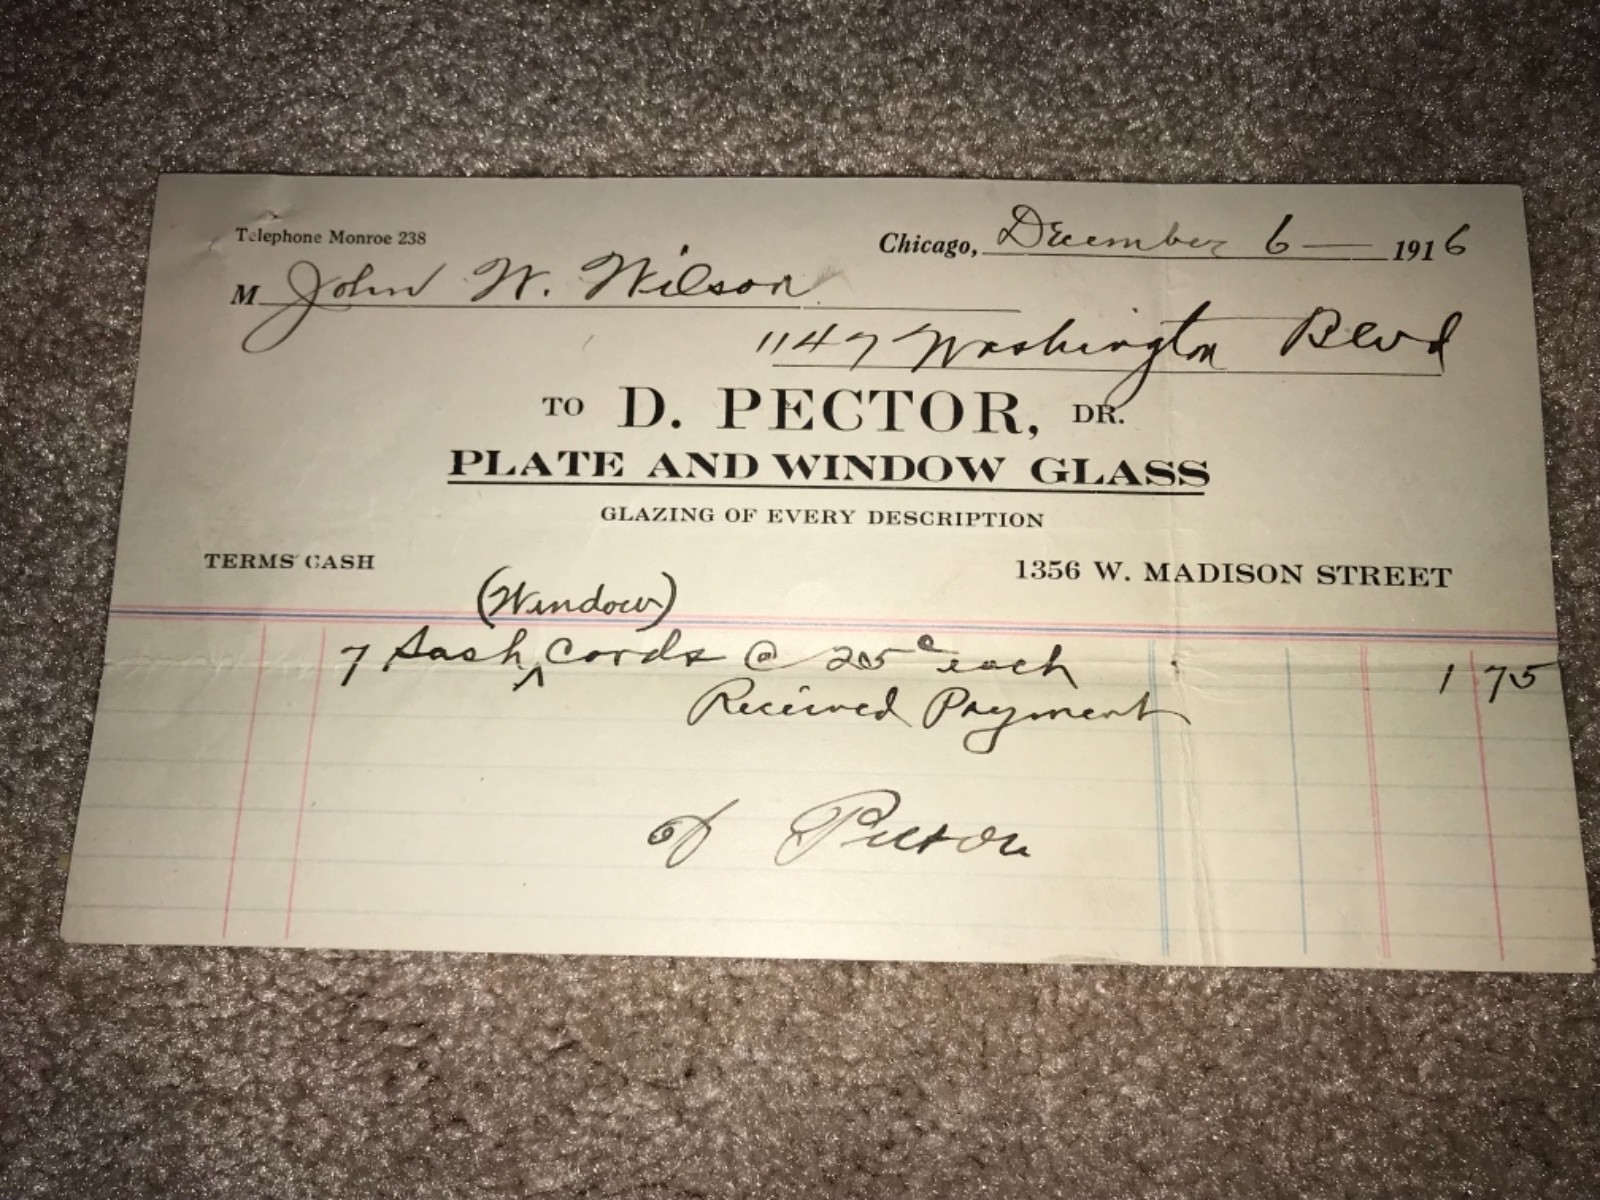 Telephone Monroe 238
Chicago, December 6 — 1916
M John W. Wilson
1147 Washington Blvd
TO D. PECTOR, DR.
PLATE AND WINDOW GLASS
GLAZING OF EVERY DESCRIPTION
TERMS CASH
1356 W. MADISON STREET
(Window)
7 Sash ^ Cords @ 25c each 1 75
Received Payment
D Pector